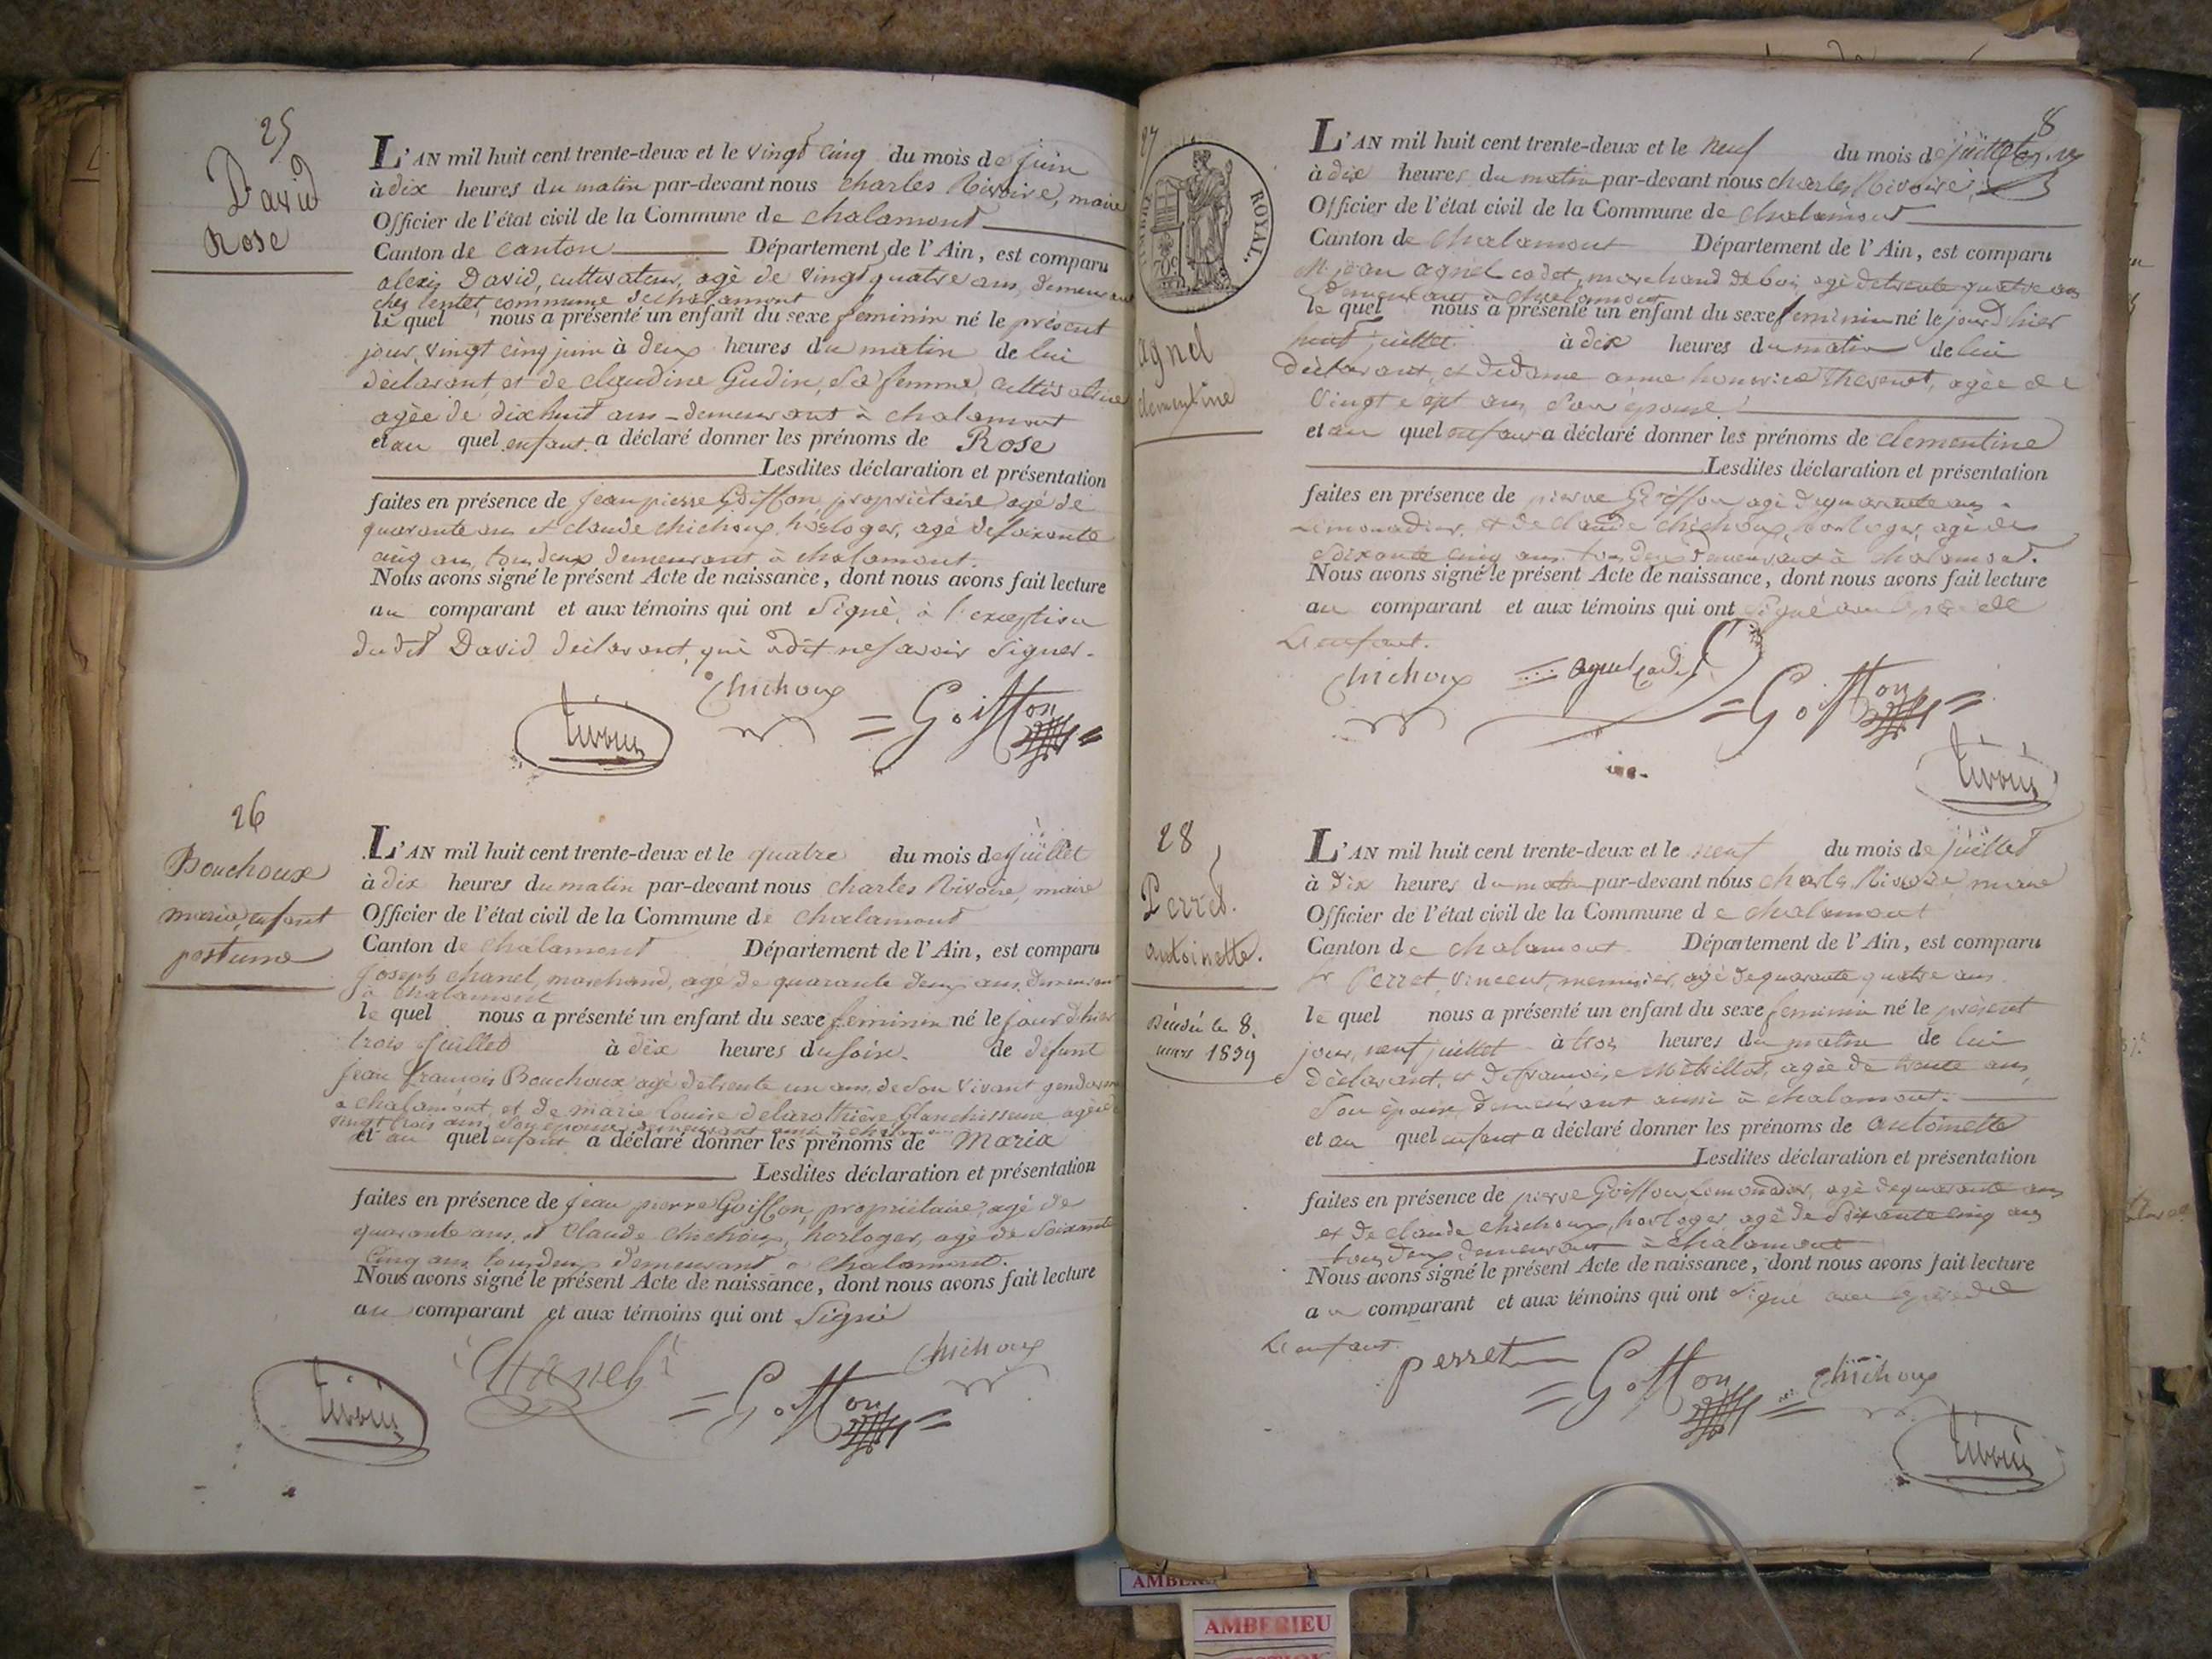 25
David
Rose
L'AN mil huit cent trente-deux et le vingt cinq du mois de juin
à dix heures du matin par-devant nous charles Rivoire, maire
Officier de l'état civil de la Commune de chalamont
Canton de canton Département de l'Ain, est comparu
alexis David, cultivateur, agé de vingt quatre ans, demeurant
commune de chalamont
le quel nous a présenté un enfant du sexe feminin né le présent
jour, vingt cinq juin à deux heures du matin de lui
déclarant, et de claudine Gudin, sa femme, cultivatrice
agée de dix huit ans demeurant à chalamont
et au quel enfant a déclaré donner les prénoms de Rose
Lesdites déclaration et présentation
faites en présence de jean pierre Goiffon, propriétaire, agé de
quarante ans et claude chichoux, horloger, agé de soixante
cinq ans, tous deux demeurant à chalamont.
Nous avons signé le présent Acte de naissance, dont nous avons fait lecture
au comparant et aux témoins qui ont signé, à l'exception
dudit David déclarant, qui a dit ne savoir signer.
Chichoux
Goiffon
Rivoire
26
Bouchoux
maria, enfant
postume
L'AN mil huit cent trente-deux et le quatre du mois de juillet
à dix heures du matin par-devant nous charles Rivoire, maire
Officier de l'état civil de la Commune de chalamont
Canton de chalamont Département de l'Ain, est comparu
joseph chanel, marchand, agé de quarante deux ans, demeurant
à chalamont
le quel nous a présenté un enfant du sexe feminin né le jour d'hier
trois juillet à dix heures du soir. de défunt
jean françois Bouchoux agé de trente un ans, de son vivant gendarme
a chalamont, et de marie Louise delarothière, blanchisseuse agée de
vingt trois ans, son epouse, demeurant aussi à chalamont
et au quel enfant a déclaré donner les prénoms de Maria
Lesdites déclaration et présentation
faites en présence de jean pierre Goiffon, propriétaire, agé de
quarante ans, et claude chichoux, horloger, agé de soixante
cinq ans tous deux demeurant à chalamont.
Nous avons signé le présent Acte de naissance, dont nous avons fait lecture
au comparant et aux témoins qui ont signé
Chichoux
Chanel
Goiffon
Rivoire
8
27
TIMBRE ROYAL.
agnel
clementine
L'AN mil huit cent trente-deux et le neuf du mois de juillet
à dix heures du matin par-devant nous charles Rivoire,
Officier de l'état civil de la Commune de chalamont
Canton de chalamont Département de l'Ain, est comparu
M. jean agnel cadet, marchand de bois, agé de trente quatre ans
demeurant à chalamont
le quel nous a présenté un enfant du sexe feminin né le jour d'hier
juillet à dix heures du matin de lui
déclarant, et de dame anne Thevenot, agée de
vingt sept ans, son épouse
et au quel enfant a déclaré donner les prénoms de clementine
Lesdites déclaration et présentation
faites en présence de pierre Goiffon agé de quarante ans
limonadier, et de claude chichoux, horloger, agé de
soixante cinq ans, tous deux demeurant à chalamont.
Nous avons signé le présent Acte de naissance, dont nous avons fait lecture
au comparant et aux témoins qui ont signé
L'enfant.
Chichoux agnel cadet Goiffon
Rivoire
28
Perret.
antoinette.
Décédée le 8
mars 1839
L'AN mil huit cent trente-deux et le neuf du mois de juillet
à dix heures du matin par-devant nous charles Rivoire maire
Officier de l'état civil de la Commune de chalamont
Canton de chalamont Département de l'Ain, est comparu
Sr Perret, Vincent, menuisier, agé de quarante quatre ans
le quel nous a présenté un enfant du sexe feminin né le présent
jour, neuf juillet à trois heures du matin de lui
déclarant, et de françoise agée de trente ans,
son épouse, demeurant aussi à chalamont.
et au quel enfant a déclaré donner les prénoms de antoinette
Lesdites déclaration et présentation
faites en présence de pierre Goiffon limonadier, agé de quarante ans
et de claude chichoux, horloger, agé de soixante cinq ans
tous deux demeurant à chalamont
Nous avons signé le présent Acte de naissance, dont nous avons fait lecture
au comparant et aux témoins qui ont signé avec le père de
L'enfant.
perret
Goiffon
Chichoux
Rivoire
AMBERIEU